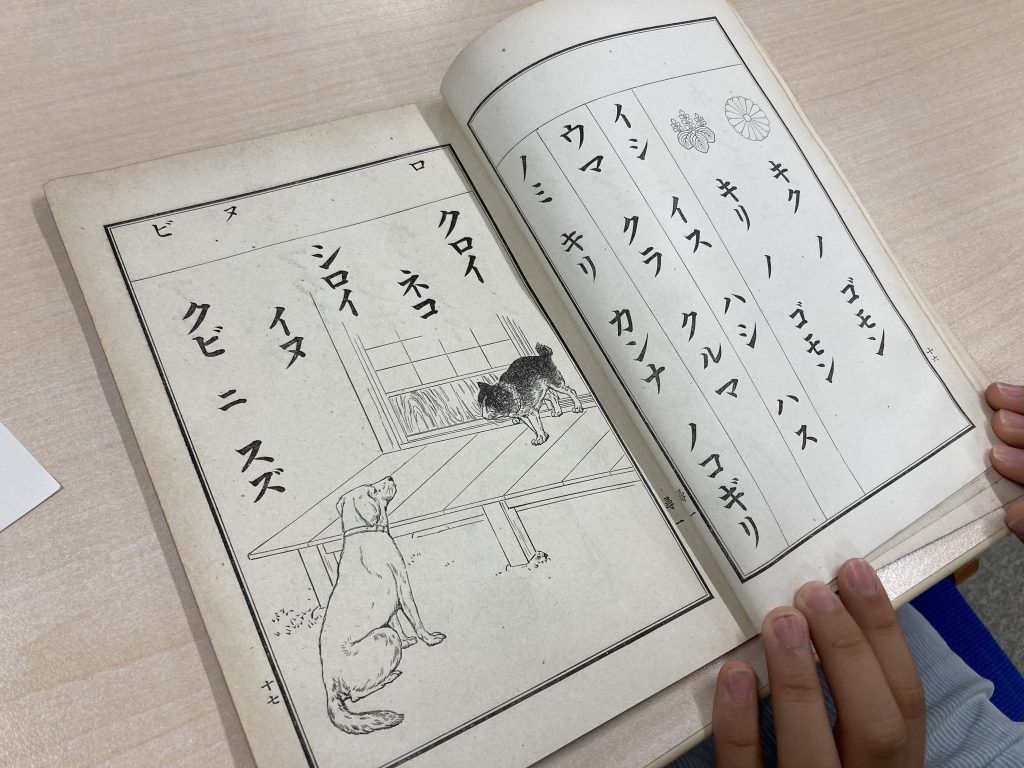 キク ノ ゴモン
キリ ノ ゴモン
イシ イス ハシ ハス
ウマ クラ クルマ
ノミ キリ カンナ ノコギリ
十六
ロ ヌ ビ
クロイ
ネコ
シロイ
イヌ
クビ ニ スズ
十七